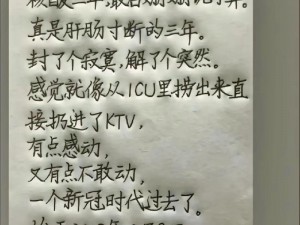 核酸三年,最
真是肝肠寸断的三年。
封了个寂寞,解了个突然。
感觉就像从ICU里捞出来直
接扔进了KTV,
有点感动,
又有点不敢动,
一个新冠时代过去了。